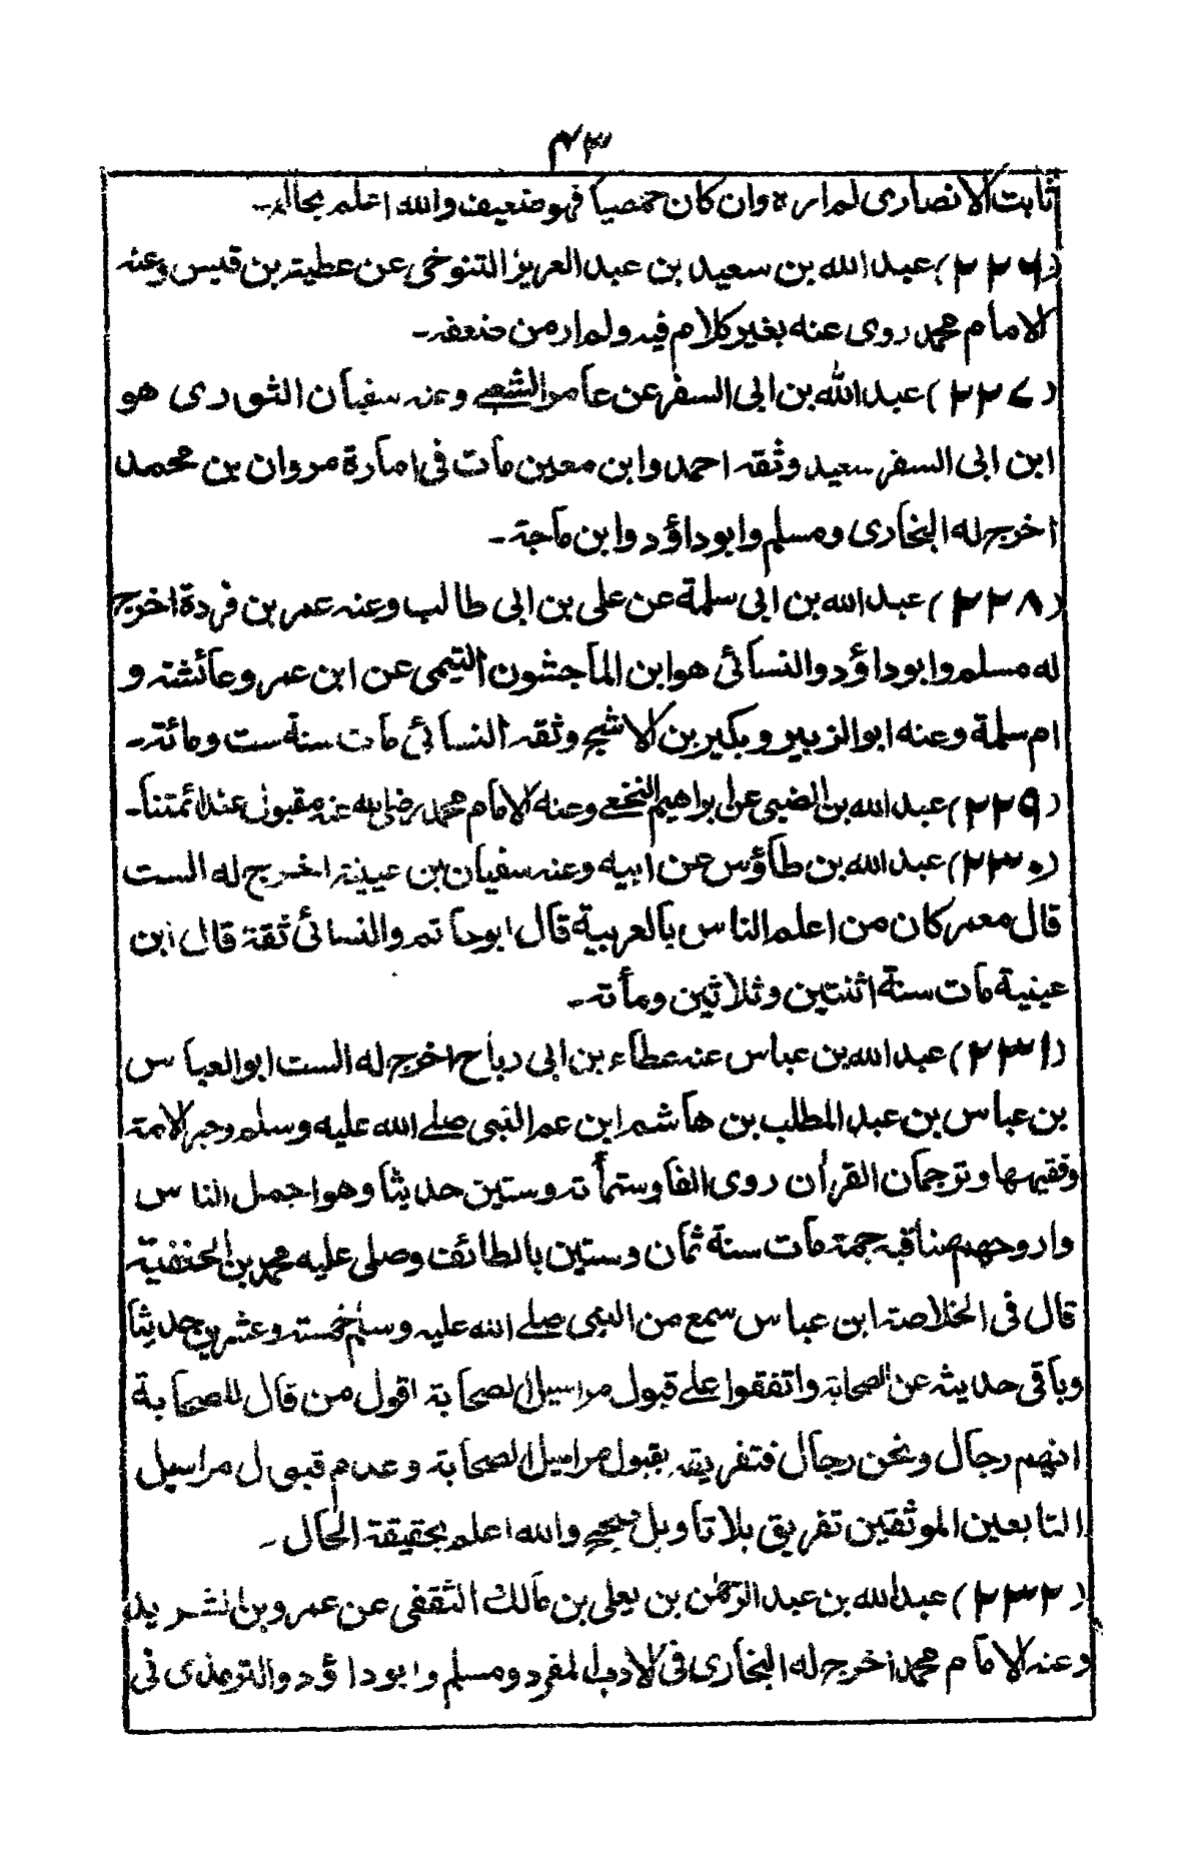 ۴۳
ثابت الانصاری لم ارہ وان کان حمصیا فہو ضعیف واللہ اعلم بحالہ۔
(۲۲۶) عبد اللہ بن سعید بن عبد العزیز التنوخی عن عطیتہ بن قیس وعنہ
الامام محمد روی عنہ بغیر کلام فیہ ولم ار من ضعفہ۔
(۲۲۷) عبد اللہ بن ابی السفر عن عامر الشعبے وعنہ سفیان الثوری ھو
ابن ابی السفر سعید وثقہ احمد وابن معین مات فی امارۃ مروان بن محمد
اخرج لہ البخاری ومسلم وابو داؤد وابن ماجۃ۔
(۲۲۸) عبد اللہ بن ابی سلمۃ عن علی بن ابی طالب وعنہ عمر بن فردۃ اخرج
لہ مسلم وابو داؤد والنسائی ھو ابن الماجشون التیمی عن ابن عمر وعائشتہ و
ام سلمۃ وعنہ ابو الزبیر وبکیر بن الاشج وثقہ النسائی مات سنۃ ست ومائتہ۔
(۲۲۹) عبد اللہ بن الضبی عن ابراھیم النخعے وعنہ الامام محمد رضی اللہ عنہ مقبول عند ائمتنا۔
(۲۳۰) عبد اللہ بن طاؤس عن ابیہ وعنہ سفیان بن عیینۃ اخرج لہ الست
قال معمر کان من اعلم الناس بالعربیۃ قال ابو حاتم والنسائی ثقۃ قال ابن
عینیۃ مات سنۃ اثنتین وثلاثین ومأتہ۔
(۲۳۱) عبد اللہ بن عباس عنہ عطاء بن ابی رباح اخرج لہ الست ابو العباس
بن عباس بن عبد المطلب بن ھاشم ابن عم النبی صلے اللہ علیہ وسلم وحبر الامۃ
وفقیہہا وترجمان القرأن روی الفا وستمأتہ وستین حدیثا وھو اجمل الناس
واروحہم مناقبہ جمتہ مات سنۃ ثمان وستین بالطائف وصلی علیہ محمد بن الحنفیۃ
قال فی الخلاصۃ ابن عباس سمع من النبی صلے اللہ علیہ وسلم خمستہ وعشرین حدیثا
وباقی حدیثہ عن الصحابۃ واتفقوا علے قبول مراسیل الصحابۃ اقول من قال للصحابۃ
انہم رجال ونحن رجال فتفریقہ بقبول مراسیل الصحابۃ وعدم قبول مراسیل
التابعین الموثقین تفریق بلا تاویل صحیح واللہ اعلم بحقیقۃ الحال۔
(۲۳۲) عبد اللہ بن عبد الرحمٰن بن یعلی بن مالک الثقفی عن عمرو بن الشرید
وعنہ الامام محمد اخرج لہ البخاری فی الادب المفرد ومسلم وابو داؤد والترمذی فی